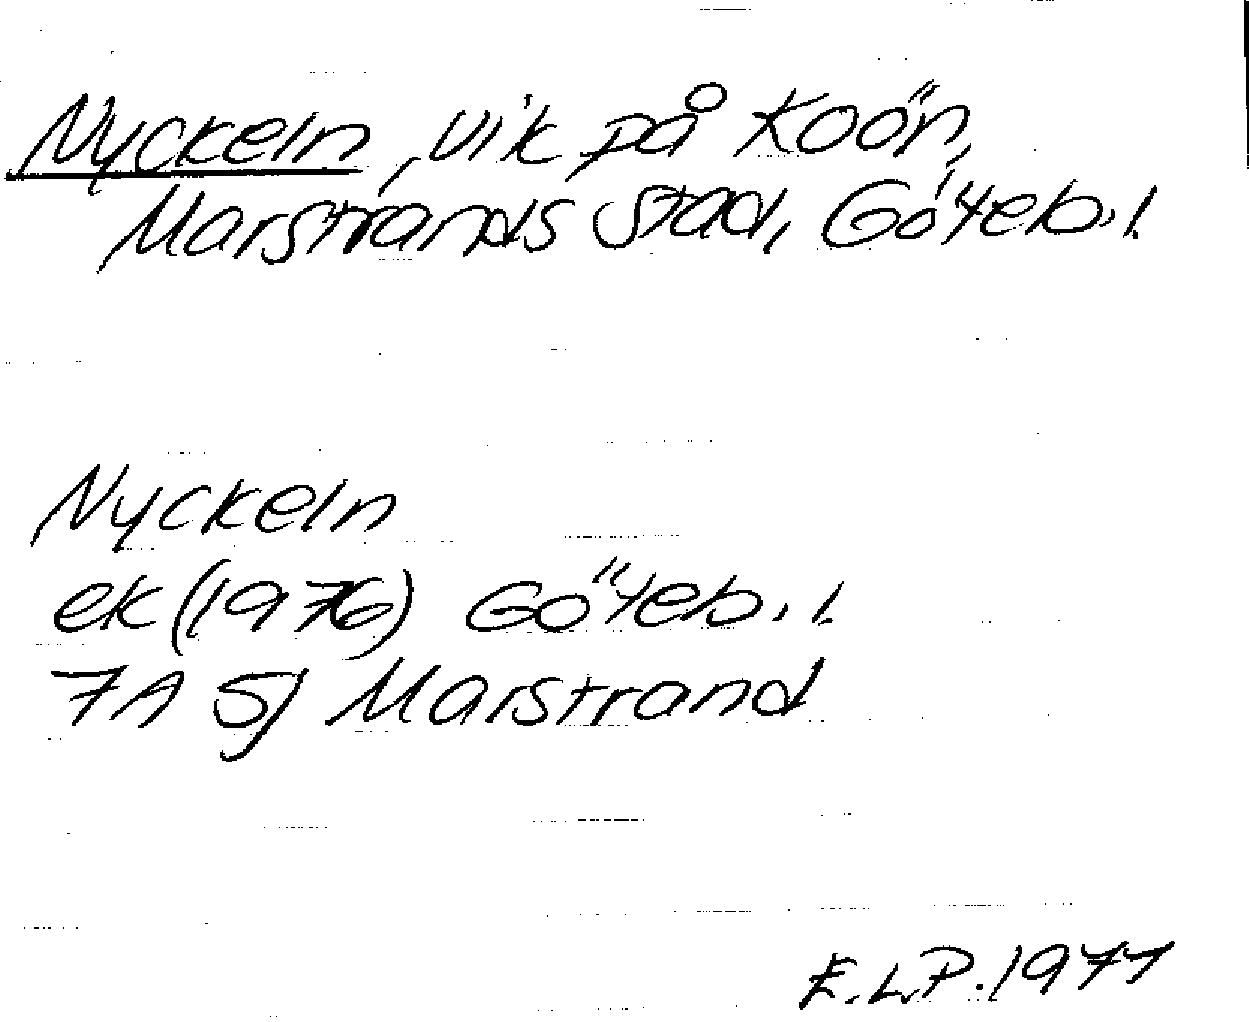 Nyckeln, vik på Koön,
Marstrands stad, Göteb. l.
Nyckeln
ek (1976) Göteb. l.
7A Sj Marstrand
E.L.P. 1977